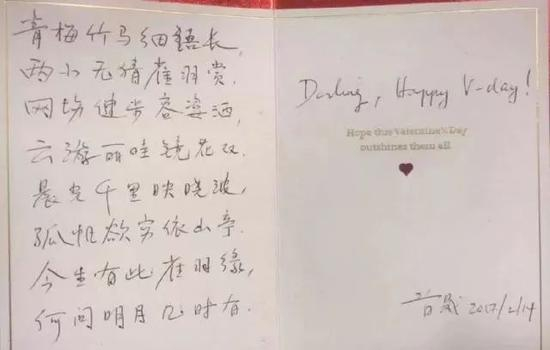 青梅竹马细语长,
两小无猜雀羽赏.
网场健步容姿洒,
云游丽哇镜花双.
晨光千里映晓波,
孤帆欲穷依山亭.
今生有此雀羽缘,
何问明月几时有.
Darling, Happy V-day!
Hope this Valentine's Day
outshines them all
2017/2/14